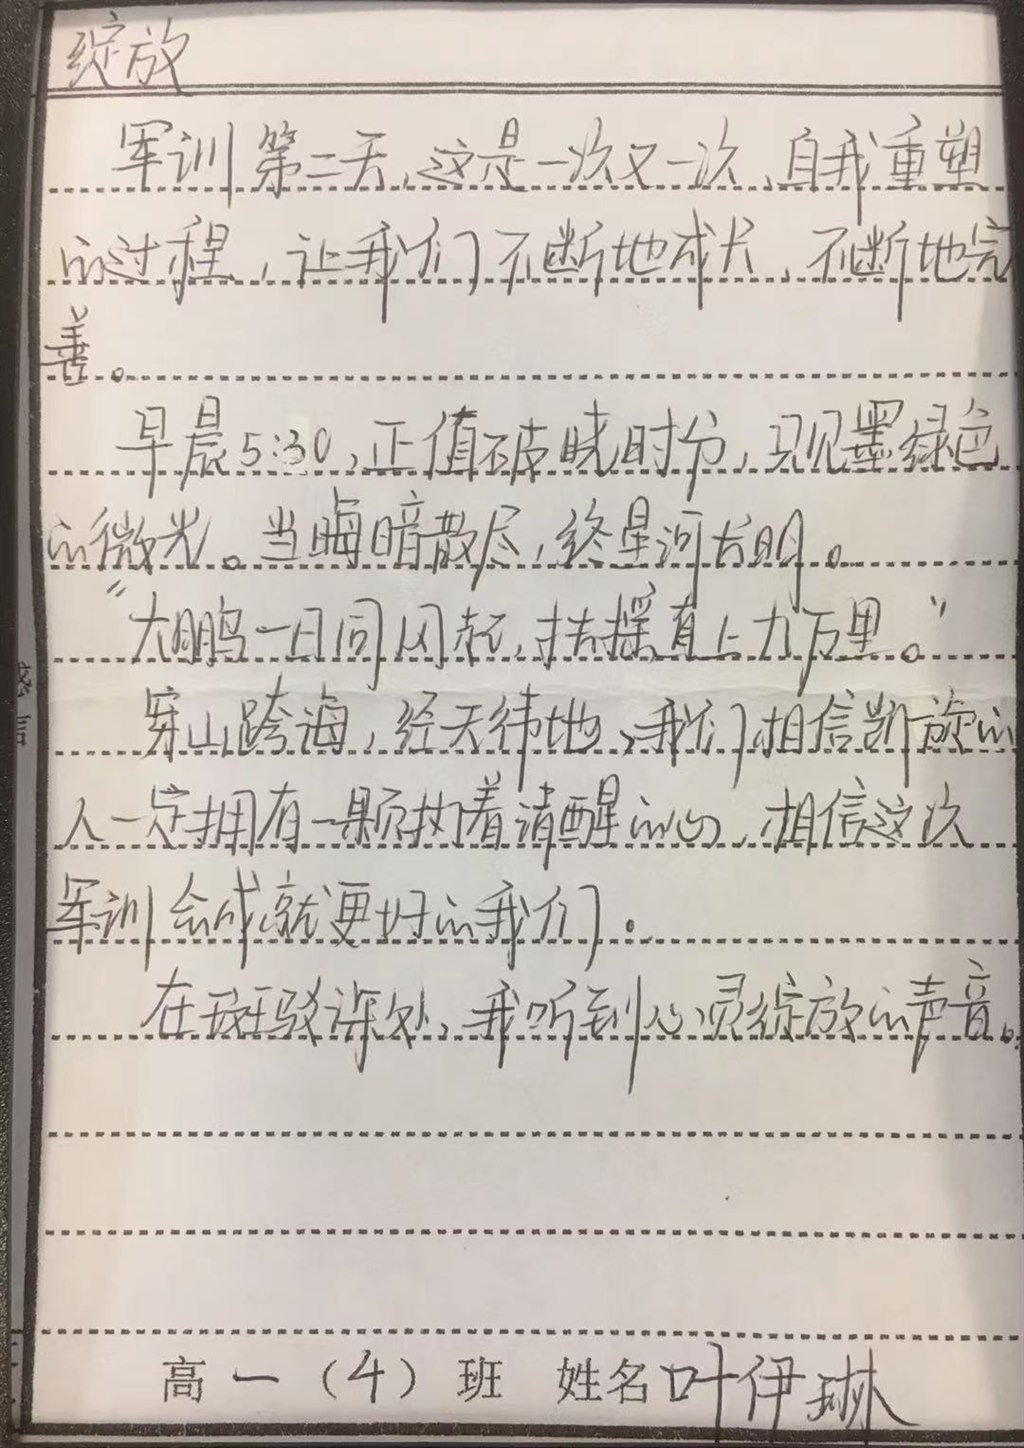 绽放
军训第二天,这是一次又一次、自我重塑
的过程,让我们不断地成长,不断地完
善。
早晨5:30,正值破晓时分,只见墨绿色
的微光。当晦暗散尽,终星河长明。
“大鹏一日同风起,扶摇直上九万里。”
穿山跨海,经天纬地,我们相信凯旋的
人一定拥有一颗执着清醒的心,相信这次
军训会成就更好的我们。
在斑驳深处,我听到心灵绽放的声音。
高一(4)班 姓名叶伊琳